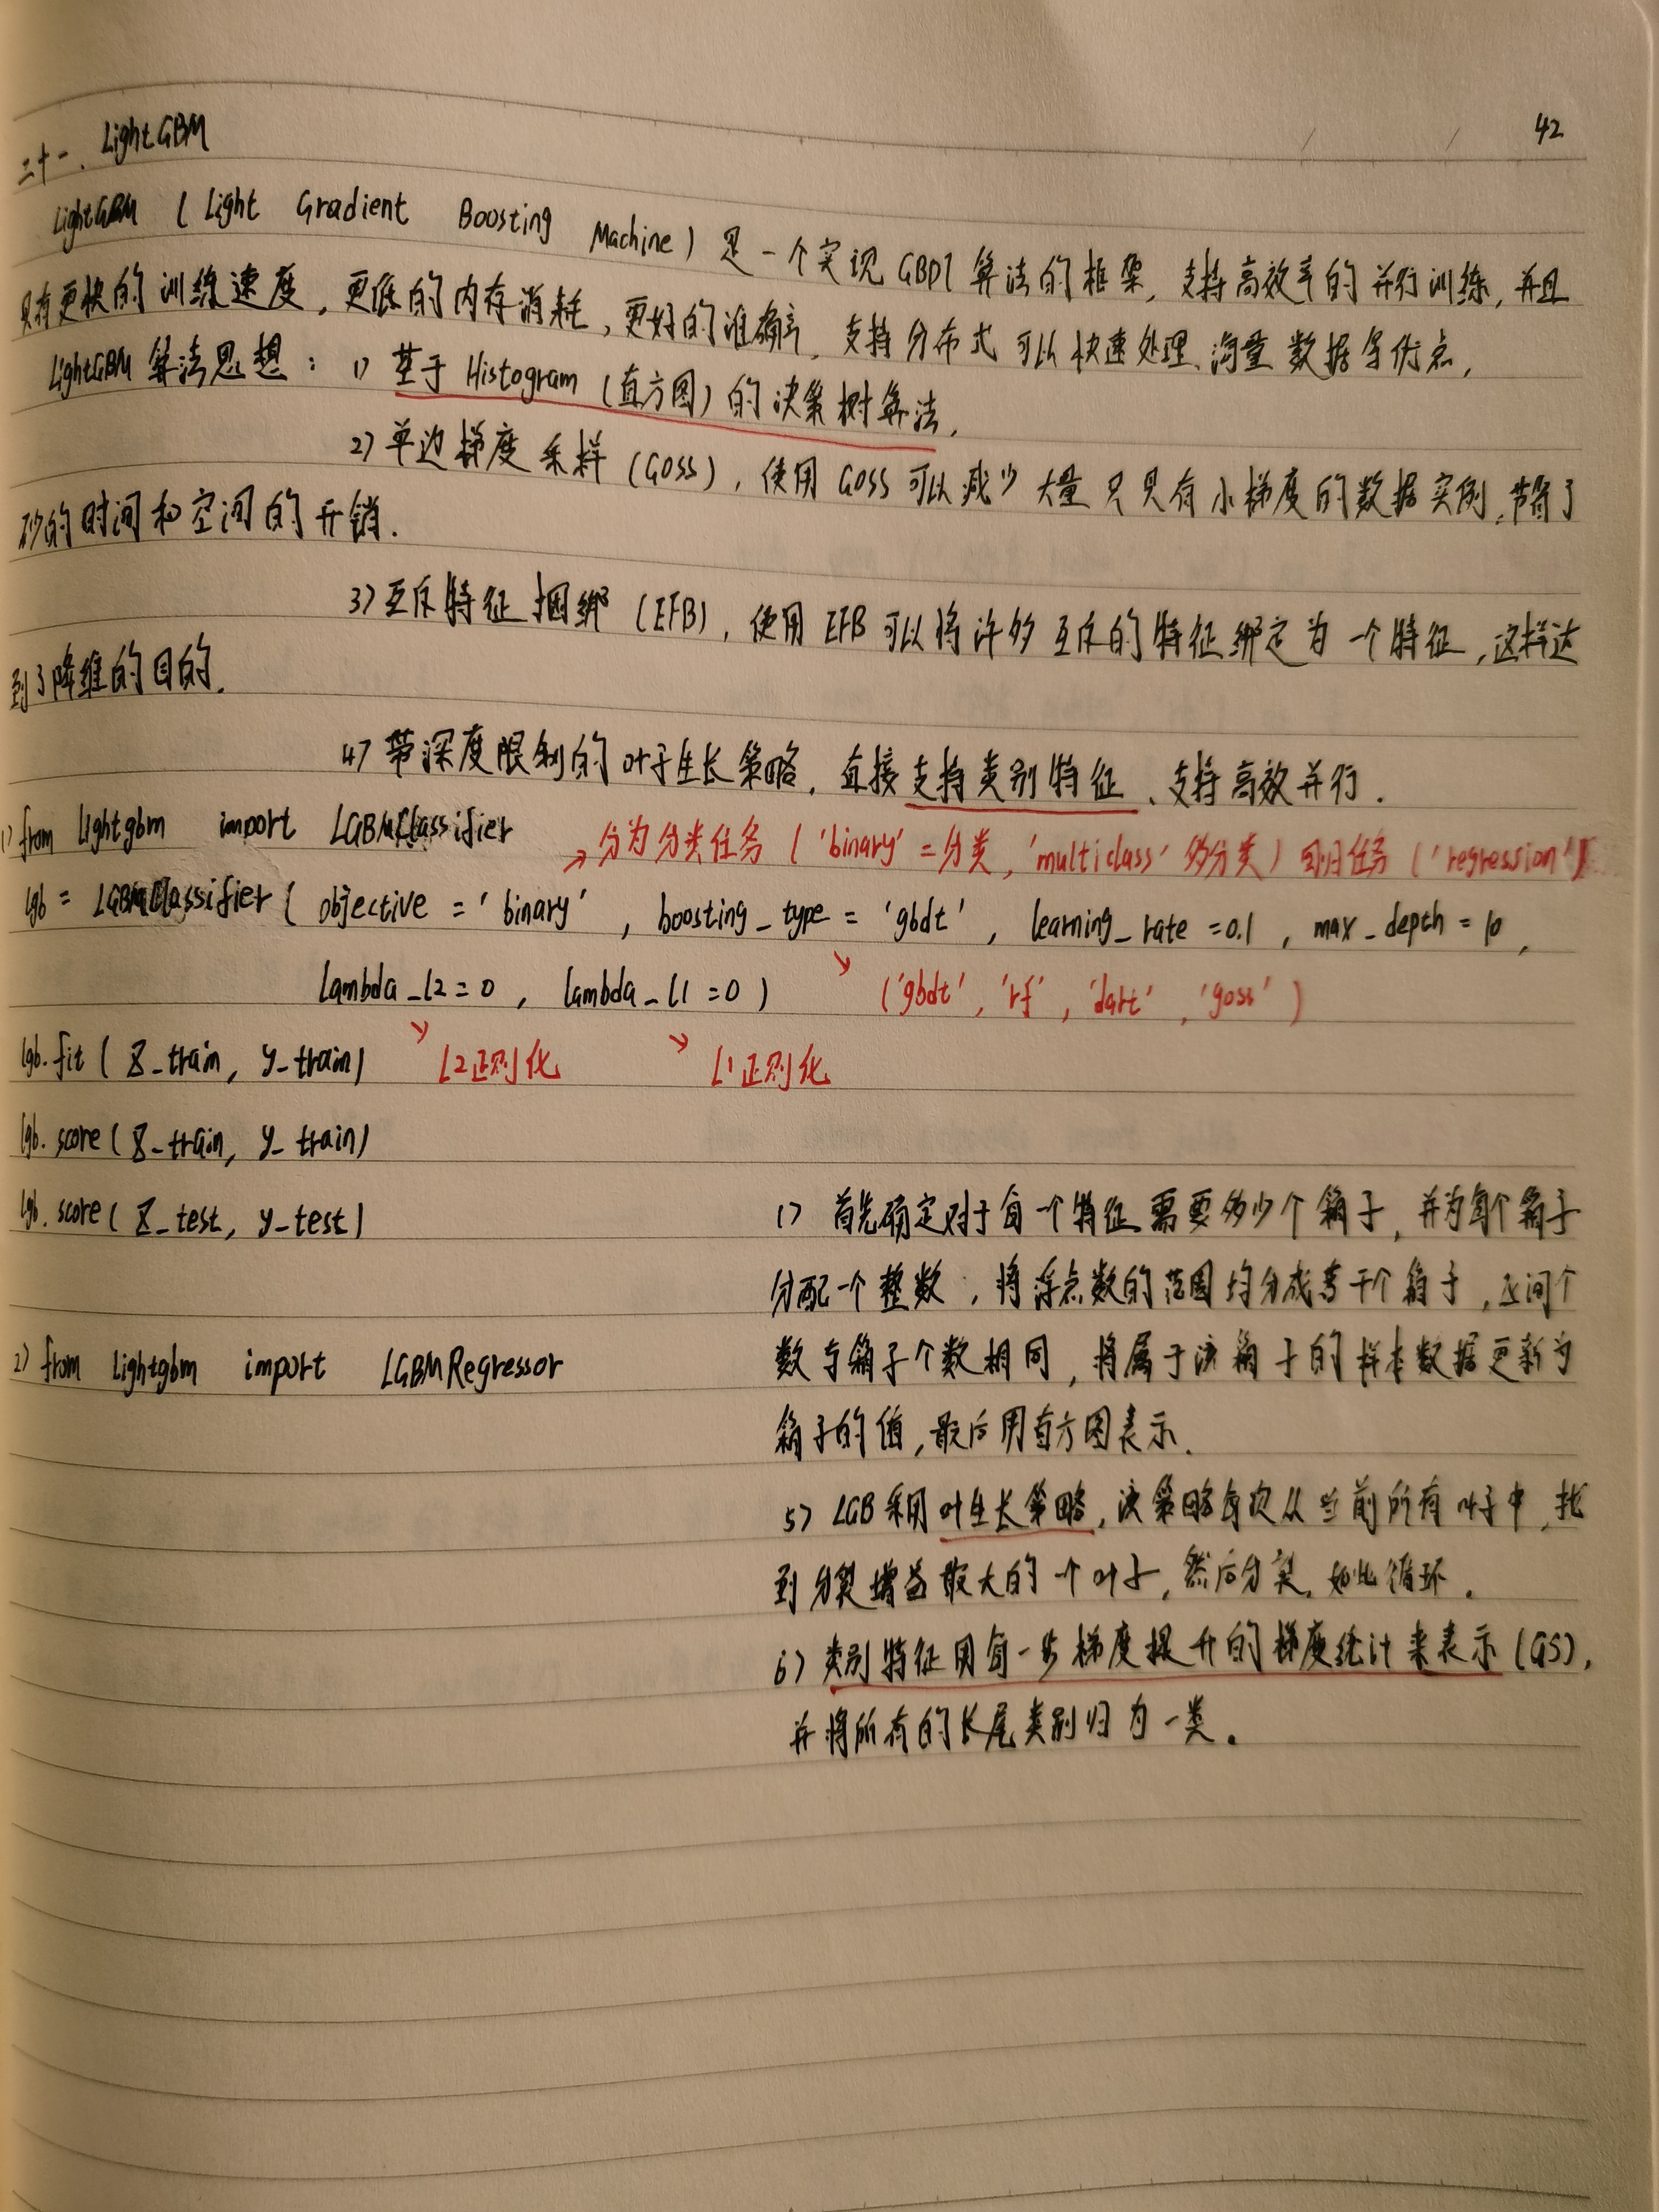 42
二十一. LightGBM
LightGBM (Light Gradient Boosting Machine) 是一个实现GBDT算法的框架, 支持高效率的并行训练, 并且
具有更快的训练速度, 更低的内存消耗, 更好的准确率, 支持分布式可以快速处理海量数据等优点,
LightGBM算法思想: 1) 基于Histogram (直方图) 的决策树算法,
2) 单边梯度采样 (GOSS), 使用GOSS可以减少大量只具有小梯度的数据实例, 节省了
的时间和空间的开销.
3) 互斥特征捆绑 (EFB), 使用EFB可以将许多互斥的特征绑定为一个特征, 这样达
到了降维的目的.
4) 带深度限制的叶子生长策略, 直接支持类别特征、支持高效并行.
1) from lightgbm import LGBMClassifier
→ 分为分类任务 ('binary' 二分类, 'multiclass' 多分类) 回归任务 ('regression')
lgb = LGBMClassifier( objective = 'binary' , boosting_type = 'gbdt' , learning_rate =0.1 , max_depth = 10 ,
lambda_l2 = 0 , lambda_l1 =0 )
('gbdt', 'rf', 'dart', 'goss')
lgb.fit ( Z_train, y_train)
L2正则化 L1正则化
lgb. score ( Z_train, y_train)
lgb. score ( Z_test, y_test)
1) 首先确定对于每一个特征需要多少个箱子, 并为每个箱子
分配一个整数, 将浮点数的范围均分成若干个箱子, 区间个
数与箱子个数相同, 将属于该箱子的样本数据更新为
箱子的值, 最后用直方图表示.
2) from lightgbm import LGBMRegressor
5) LGB采用叶生长策略, 该策略每次从当前所有叶子中, 找
到分裂增益最大的一个叶子, 然后分裂, 如此循环.
6) 类别特征用每一步梯度提升的梯度统计来表示 (GS),
并将所有的长尾类别归为一类。